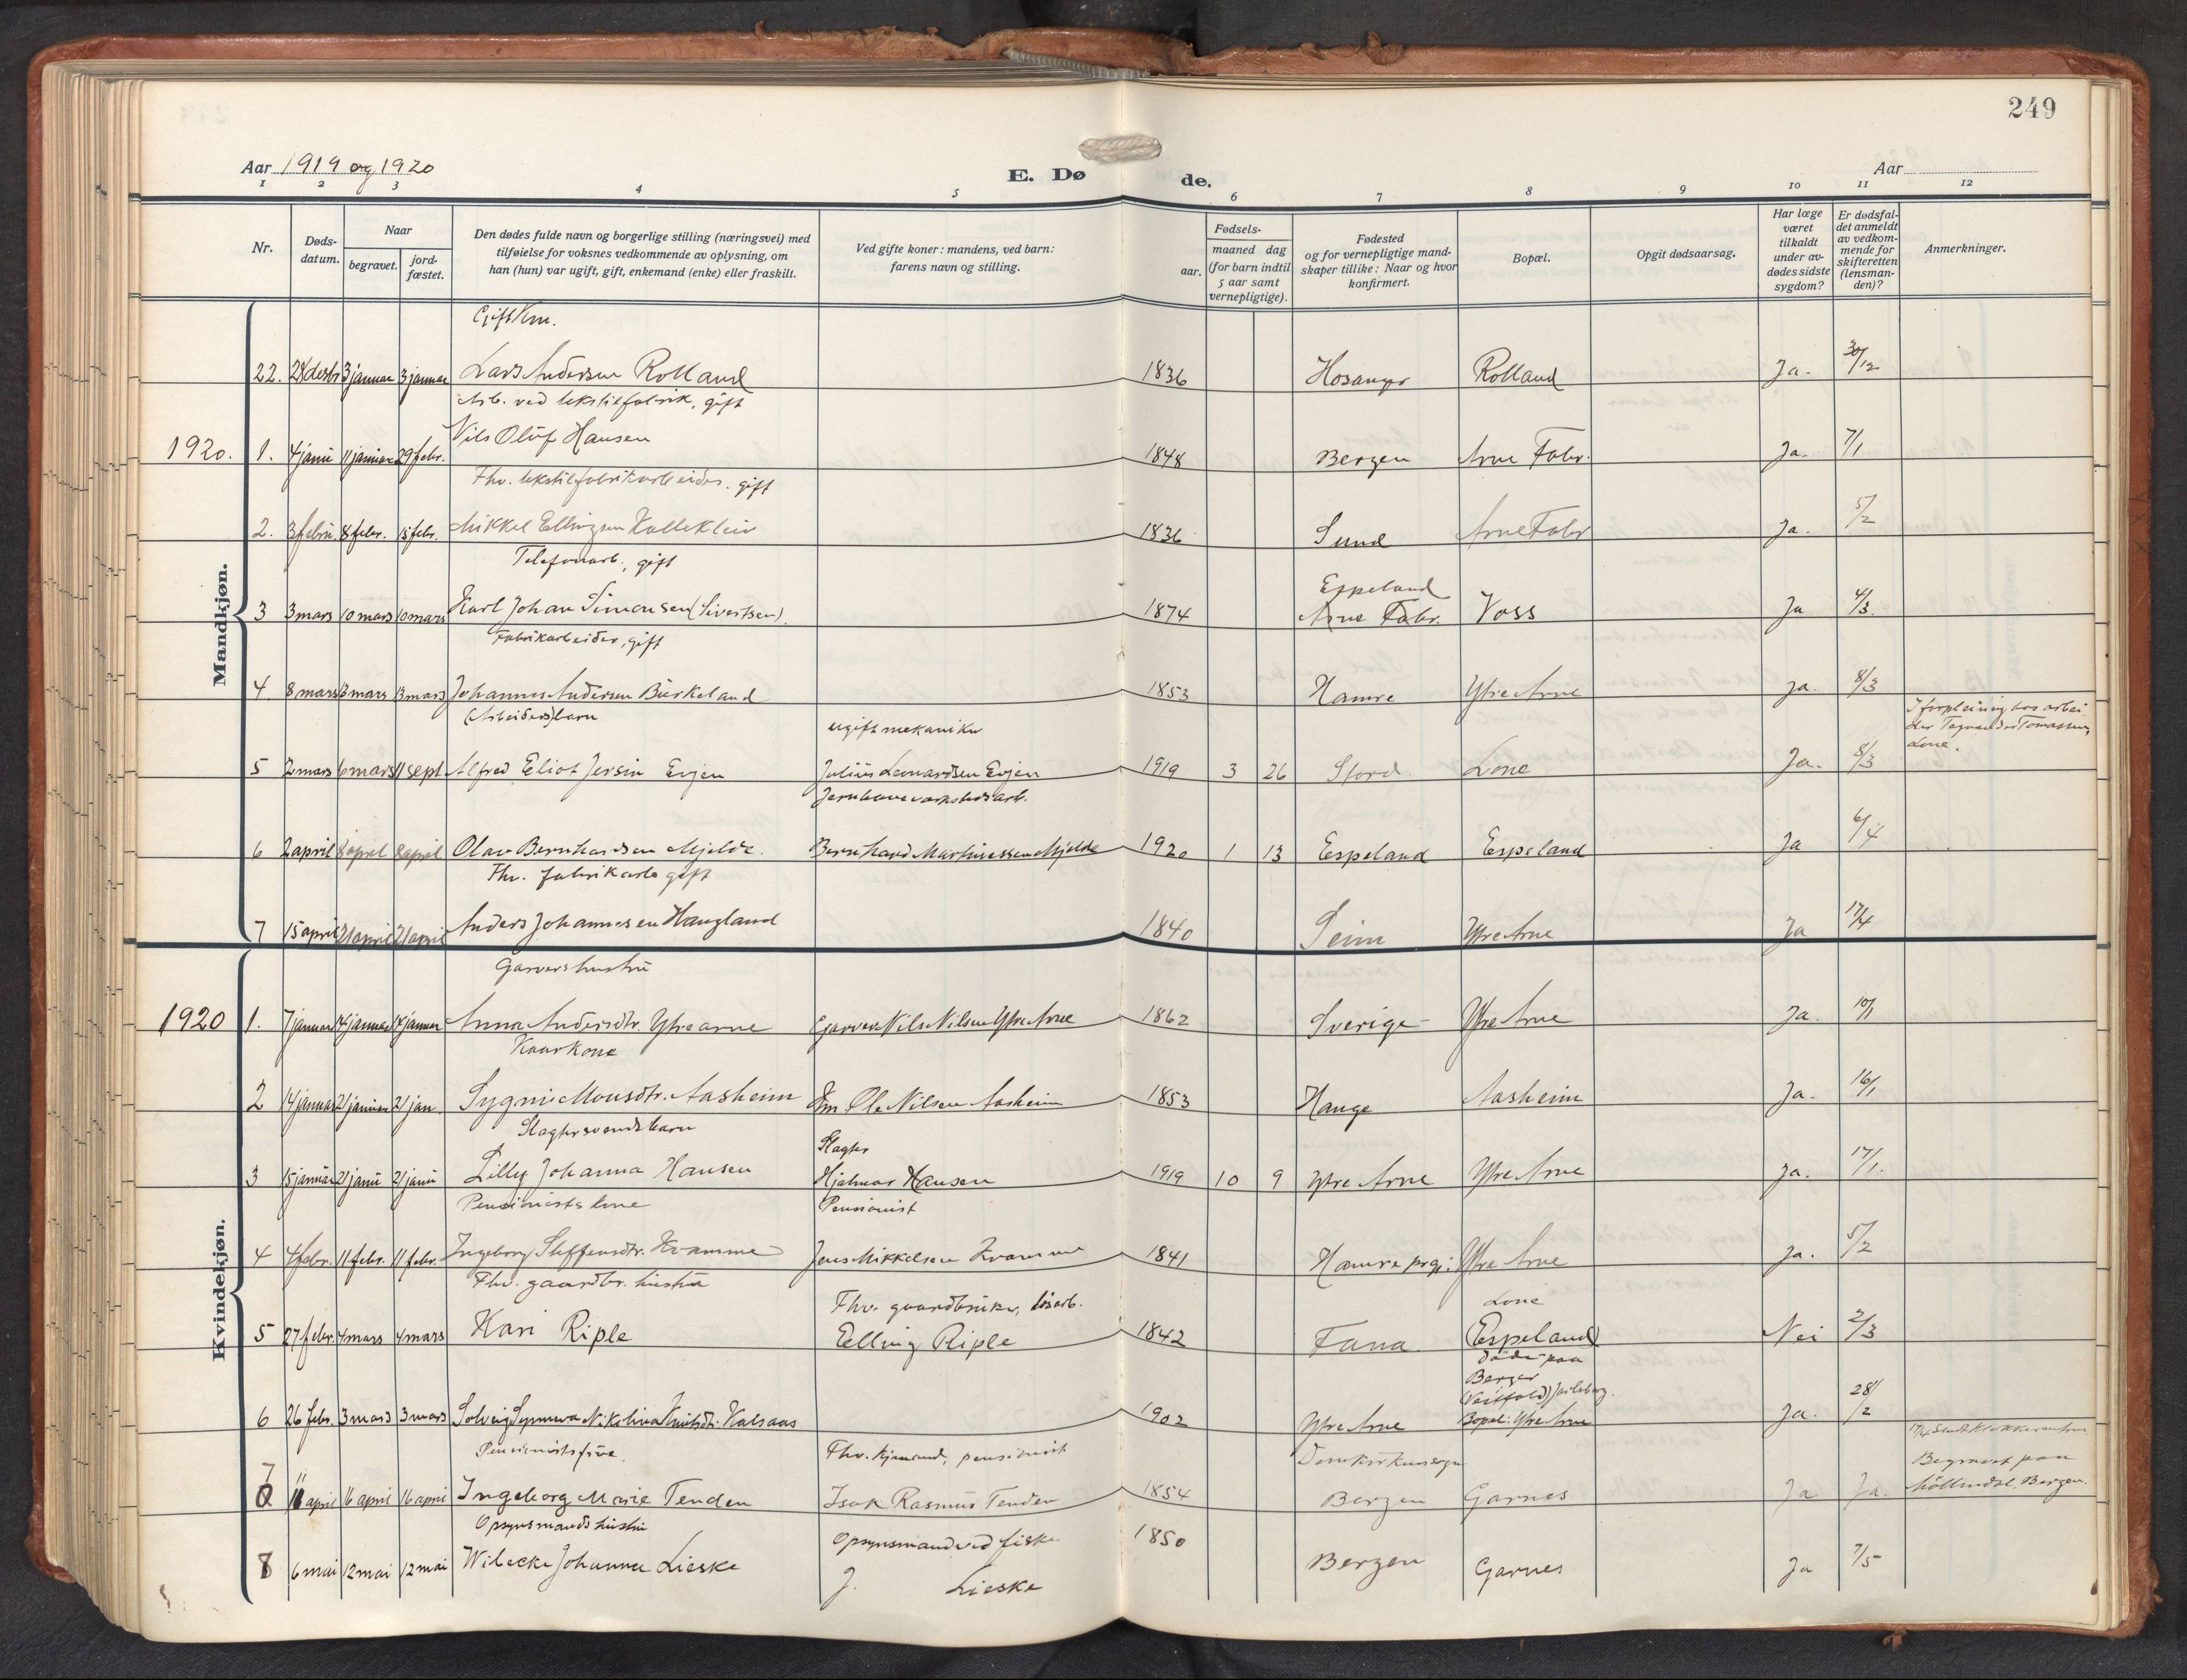 249
Aar 1919 og 1920
E. Døde.
Aar
1 2 3 4 5 6 7 8 9 10 11 12
Nr.
Døds-
datum.
Naar
begravet.
jord-
fæstet.
Den dødes fulde navn og borgerlige stilling (næringsvei) med
tilføielse for voksnes vedkommende av oplysning, om
han (hun) var ugift, gift, enkemand (enke) eller fraskilt.
Ved gifte koner: mandens, ved barn:
farens navn og stilling.
Fødsels-
aar.
maaned dag
(for barn indtil
5 aar samt
vernepligtige).
Fødested
og for vernepligtige mand-
skaper tillike: Naar og hvor
konfirmert.
Bopæl.
Opgit dødsaarsag.
Har læge
været
tilkaldt
under av-
dødes sidste
sygdom?
Er dødsfal-
det anmeldt
av vedkom-
mende for
skifteretten
(lensman-
den)?
Anmerkninger.
Mandkjøn.
Gift
22. 28 desbr 3 januar 3 januar Lars Andersen Rolland 1836 Hosanger Rolland Ja. 30/12
Arb. ved tekstilfabrik, gift
1920. 1. 4 janu 11 januar 29 febr. Nils Oluf Hansen 1848 Bergen Arne Fabr. Ja. 7/1
Fhv. tekstilfabrikarbeider. gift
2. 3 febru. 8 febr. 15 febr. Mikkel Ellingsen Kalleklev 1836 Sund Arne Fabr Ja. 5/2
Telefonarb., gift
Espeland
3 3 mars 10 mars 10 mars Karl Johan Simonsen (Sivertsen). 1874 Arne Fabr. Voss Ja 4/3.
Fabrikarbeider, gift
4 8 mars 13 mars 13 mars Johannes Andersen Birkeland 1853 Hamre Ytre Arne Ja. 8/3
(Arbeiders)barn ugift mekaniker
I forpleining hos arbei
der Tomassen,
Lone.
5 2 mars 6 mars 11 sept Alfred Eliot Jersin Evjen Julius Leonardsen Evjen 1919 3 26 Stord Lone Ja. 8/3
Jernbaneverkstedsarb.
6 2 april 8 april 8 april Olav Bernhardsen Mjelde. Bernhard Martinessen Mjelde 1920 1 13 Espeland Espeland Ja 6/4
Fhv. fabrikarb gift
7 15 april 21 april 21 april Anders Johannesen Haugland 1840 Seim Ytre Arne Ja 17/4
Kvindekjøn.
Garvers hustru
1920 1. 7 januar 14 januar 14 januar Anna Andersdtr. Ytre arne Garver Nils Nilsen Ytre Arne 1862 Sverige Ytre Arne Ja. 10/1
Kaarkone
2 14 januar 21 januar 21 jan Sygni Monsdtr. Aasheim Km. Ole Nilsen Aasheim 1853 Hauge Aasheim Ja. 16/1
Slagtersvendsbarn Slagter
3 15 januar 21 janu 21 janu Lilly Johanna Hansen Hjalmar Hansen 1919 10 9 Ytre Arne Ytre Arne Ja. 17/1.
Pensionists kone Pensionist
4 4 febr. 11 febr. 11 febr. Ingeborg Steffensdtr. Kvamme Jens Mikkelsen Kvamme 1841 Hamre prgj: Ytre Arne Ja. 5/2
Fhv. gaardbr. hustru Fhv. gaardbruker, løsarb. Lone
5 27 febr. 4 mars 4 mars Kari Riple Elling Riple 1842 Fana. (Espeland) Nei 2/3
Døde paa
Berger
(Vestfold) Jarlsberg.
6 26 febr. 3 mars 3 mars Solveig Synneva Nikolina Knutsdtr. Kalsaas 1902 Ytre Arne Bopæl: Ytre Arne Ja. 28/2
Pensionistsfrue. Fhv. kjømand, pensionist Domkirkensogn
7 11 april 16 april 16 april Ingeborg Marie Tenden Isak Rasmus Tenden 1854 Bergen Garnes Ja Ja.
Begravet paa
Möllendal, Bergen.
Opsynsmands hustru Opsynsmand ved fiske
8 6 mai 12 mai 12 mai Wibecke Johanna Lieske J. Lieske 1850 Bergen Garnes Ja 7/5